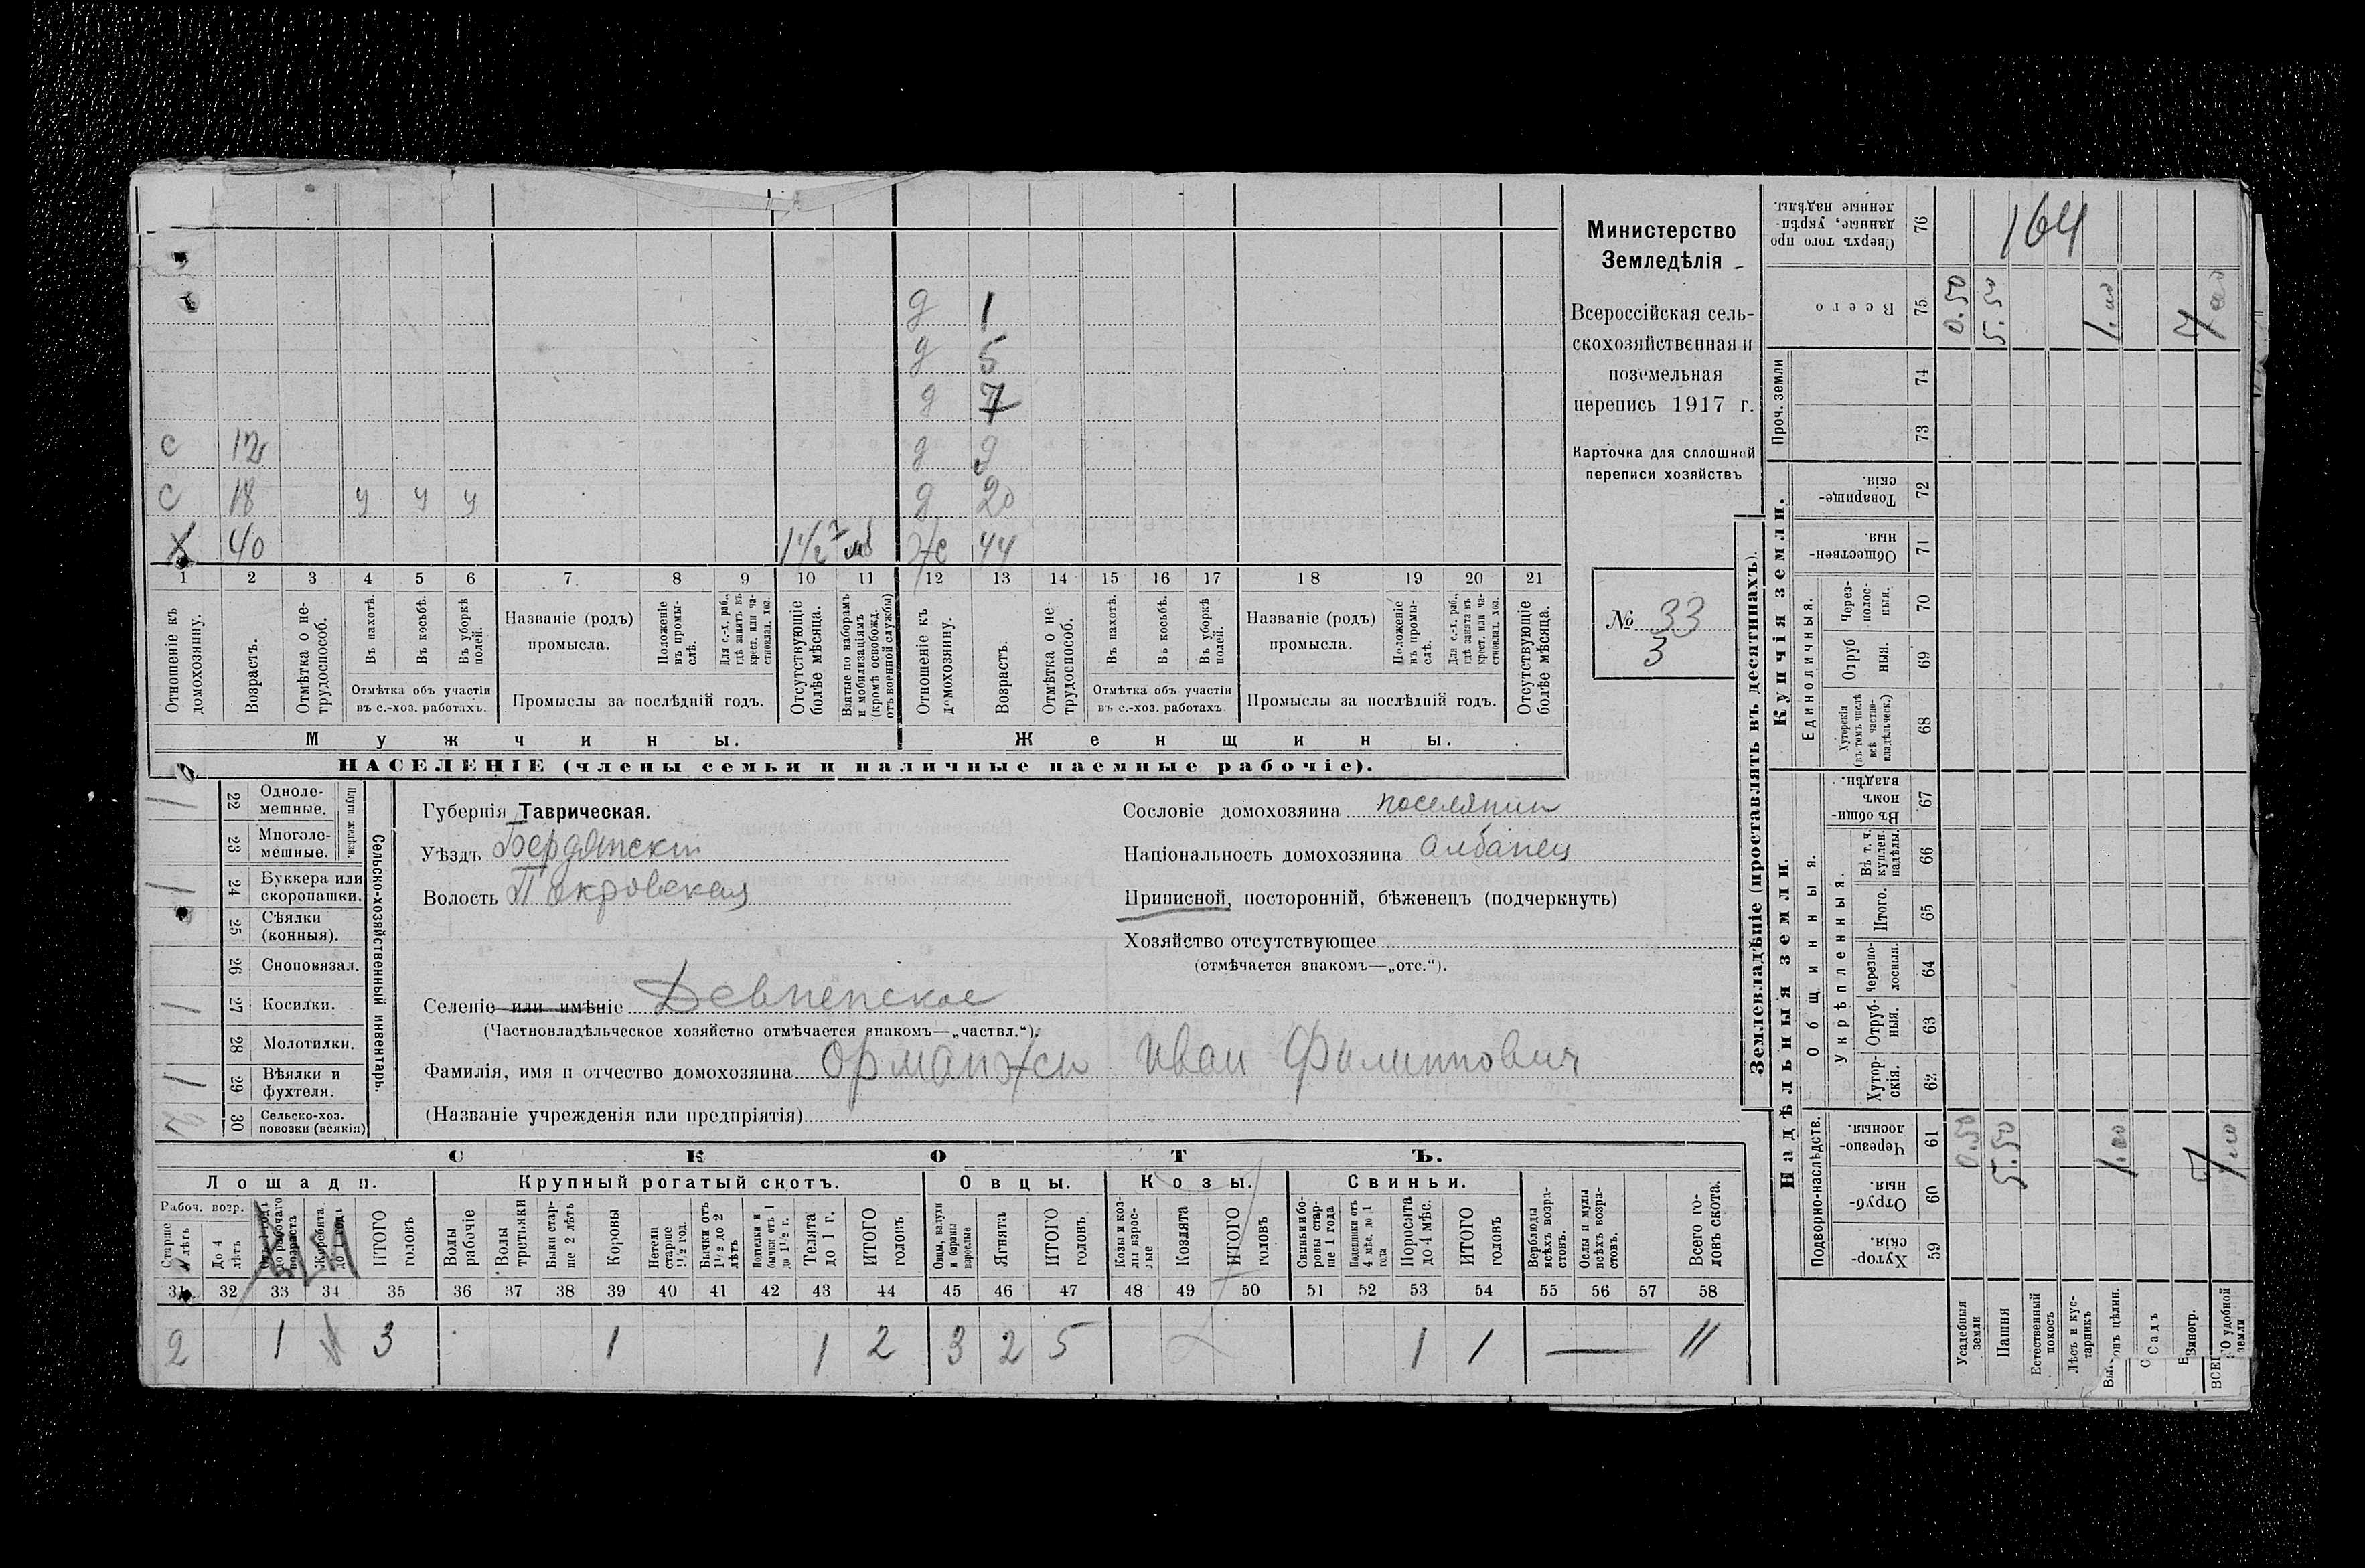 Министерство
Земледѣлія
Всероссійская сель-
скохозяйственная и
поземельная
перепись 1917 г.
Карточка для сплошной
переписи хозяйствъ
№ 33
3
д 1
д 5
д 7
с 12 д 9
с 18 у у у д 20
х 40 1 1/2 ж 44
1 2 3 4 5 6 7 8 9 10 11 12 13 14 15 16 17 18 19 20 21
Отношеніе къ домохозяину.
Возрастъ.
Отмѣтка о не-трудоспособ.
Въ пахотѣ.
Въ косьбѣ.
Въ уборкѣ полей.
Отмѣтка объ участіи въ с.-хоз. работахъ.
Названіе (родъ) промысла.
Положеніе въ промы-слѣ.
Для с.-х. раб., гдѣ занятъ въ крест. или ча-стновлад. хоз.
Промыслы за послѣдній годъ.
Отсутствующіе болѣе мѣсяца.
Взятые по наборамъ и мобилизаціямъ (кромѣ освобожд. отъ военной службы)
Отношеніе къ домохозяину.
Возрастъ.
Отмѣтка о не-трудоспособ.
Въ пахотѣ.
Въ косьбѣ.
Въ уборкѣ полей.
Отмѣтка объ участіи въ с.-хоз. работахъ.
Названіе (родъ) промысла.
Положеніе въ промы-слѣ.
Для с.-х. раб., гдѣ занята въ крест. или ча-стновлад. хоз.
Промыслы за послѣдній годъ.
Отсутствующіе болѣе мѣсяца.
Мужчины. Женщины.
НАСЕЛЕНІЕ (члены семьи и наличные наемные рабочіе).
Сельско-хозяйственный инвентарь.
Плуги желѣзн.
1 22 Одноле-мешные.
23 Многоле-мешные.
1 24 Буккера или скоропашки.
25 Сѣялки (конныя).
26 Сноповязал.
1 27 Косилки.
28 Молотилки.
1 29 Вѣялки и фухтеля.
30 Сельско-хоз. повозки (всякія)
Губернія Таврическая.
Уѣздъ Бердянскій
Волость Покровская
Селеніе или имѣніе Девненское
(Частновладѣльческое хозяйство отмѣчается знакомъ—„частвл.“).
Фамилія, имя и отчество домохозяина Орманжи Иван Филиппович
(Названіе учрежденія или предпріятія)
Сословіе домохозяина поселянин
Національность домохозяина албанец
Приписной, посторонній, бѣженецъ (подчеркнуть)
Хозяйство отсутствующее
(отмѣчается знакомъ—„отс.“).
СКОТЪ.
Лошади. Крупный рогатый скотъ. Овцы. Козы. Свиньи.
Рабоч. возр.
Старше 4 лѣтъ
До 4 лѣтъ
Жеребята до 1 года
ИТОГО головъ
Волы рабочіе
Волы третьяки
Быки стар-ше 2 лѣтъ
Коровы
Нетели старше 1 1/2 год.
Бычки отъ 1 1/2 до 2 лѣтъ
Телята до 1 г.
ИТОГО головъ
Овцы, валухи и бараны взрослые
Ягнята
ИТОГО головъ
Козы и коз-лы взрос-лые
Козлята
ИТОГО головъ
Свиньи и бо-ровы стар-ше 1 года
Подсвинки отъ 4 мѣс. до 1 года
Поросята до 4 мѣс.
ИТОГО головъ
Верблюды всѣхъ возра-стовъ.
Ослы и мулы всѣхъ возра-стовъ.
Всего го-ловъ скота.
31 32 33 34 35 36 37 38 39 40 41 42 43 44 45 46 47 48 49 50 51 52 53 54 55 56 57 58
2 1 3 1 1 2 3 2 5 1 1 — 11
Землевладѣніе (проставлять въ десятинахъ).
164
Сверхъ того про данные, укрѣп-ленные надѣлы. 76
Всего 75 0.50 5.50 1.00 7.00
Проч. земли 74 73
Купчія земли.
Товарище-скія. 72
Обществен-ныя. 71
Единоличныя.
Через-полос-ныя. 70
Отруб ныя. 69
Хуторскія (въ томъ числѣ всѣ частно-владѣльческ.) 68
Надѣльныя земли.
Общинныя.
Въ общи-номъ владѣн. 67
Укрѣпленныя.
Въ т. ч. куплен. надѣлы. 66
Итого. 65
Черезпо-лосныя. 64
Отруб-ныя. 63
Хутор-скія. 62
Подворно-наслѣдств.
Черезпо-лосныя. 61 0.50 5.50 1.00 7.00
Отруб-ныя. 60
Хутор-скія. 59
Усадебныя земли
Пашня
Естественный покосъ
Лѣсъ и кус-тарникъ
Садъ
Виногр.
О удобной земли